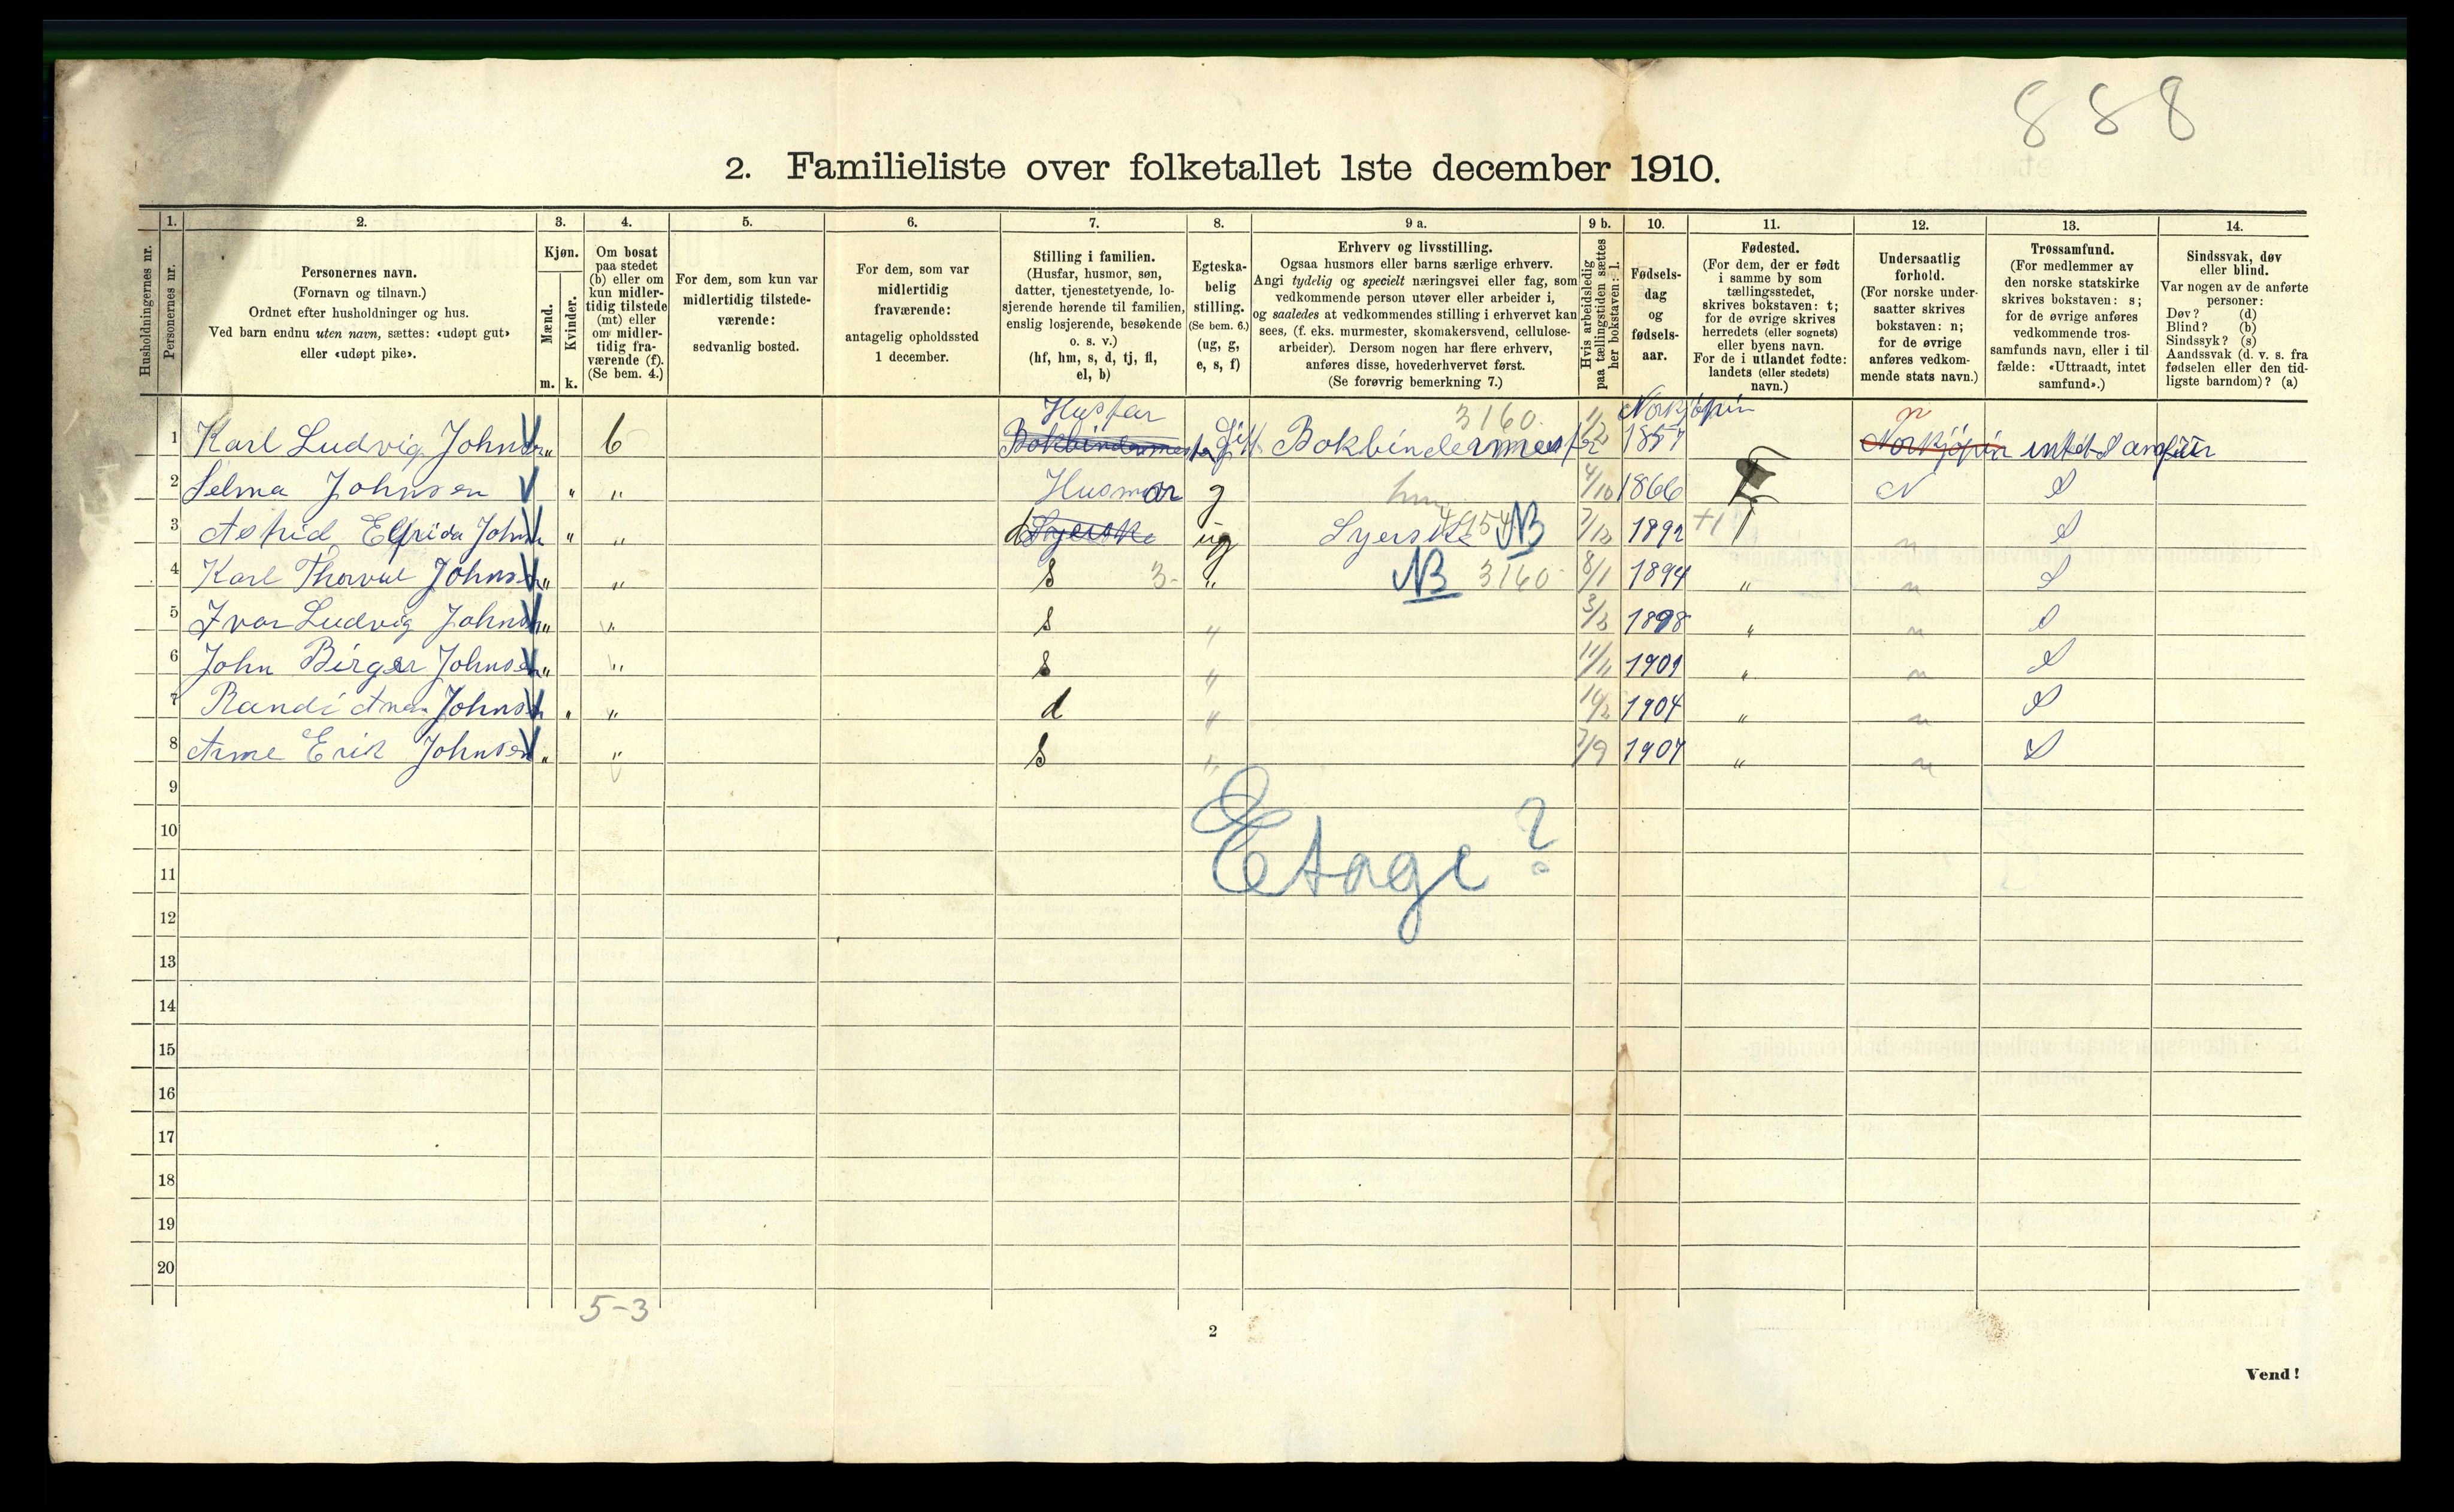 888
2. Familieliste over folketallet 1ste december 1910.
Husholdningernes nr.
1. Personernes nr.
2. Personernes navn. (Fornavn og tilnavn.) Ordnet efter husholdninger og hus. Ved barn endnu uten navn, sættes: «udøpt gut» eller «udøpt pike».
3. Kjøn. Mænd. m. Kvinder. k.
4. Om bosat paa stedet (b) eller om kun midlertidig tilstede (mt) eller om midlertidig fraværende (f). (Se bem. 4.)
5. For dem, som kun var midlertidig tilstedeværende: sedvanlig bosted.
6. For dem, som var midlertidig fraværende: antagelig opholdssted 1 december.
7. Stilling i familien. (Husfar, husmor, søn, datter, tjenestetyende, losjerende hørende til familien, enslig losjerende, besøkende o. s. v.) (hf, hm, s, d, tj, fl, el, b)
8. Egteskabelig stilling. (Se bem. 6.) (ug, g, e, s, f)
9 a. Erhverv og livsstilling. Ogsaa husmors eller barns særlige erhverv. Angi tydelig og specielt næringsvei eller fag, som vedkommende person utøver eller arbeider i, og saaledes at vedkommendes stilling i erhvervet kan sees, (f. eks. murmester, skomakersvend, cellulosearbeider). Dersom nogen har flere erhverv, anføres disse, hovederhvervet først. (Se forøvrig bemerkning 7.)
9 b. Hvis arbeidsledig paa tællingstiden sættes her bokstaven: l.
10. Fødselsdag og fødselsaar.
11. Fødested. (For dem, der er født i samme by som tællingsstedet, skrives bokstaven: t; for de øvrige skrives herredets (eller sognets) eller byens navn. For de i utlandet fødte: landets (eller stedets) navn.)
12. Undersaatlig forhold. (For norske undersaatter skrives bokstaven: n; for de øvrige anføres vedkommende stats navn.)
13. Trossamfund. (For medlemmer av den norske statskirke skrives bokstaven: s; for de øvrige anføres vedkommende trossamfunds navn, eller i tilfælde: «Uttraadt, intet samfund».)
14. Sindssvak, døv eller blind. Var nogen av de anførte personer: Døv? (d) Blind? (b) Sindssyk? (s) Aandssvak (d. v. s. fra fødselen eller den tidligste barndom)? (a)
Husfar 3160 Norkjøpin n
1 Karl Ludvig Johnsen " b Bokbindermester Gift Bokbindermest 1857 Norkjøpin
2 Selma Johnsen " " Husmor g hm 4/10 1866 N S
3 Astrid Elfrida Johnsen " " d Syerske ug Syerske NB 1892 n S
4 Karl Johnsen " " s 3- " NB 3160 8/1 1894 " n S
5 Ivar Ludvig Johnsen " " s " 1898 " n S
6 John Birger Johnsen " " s " 11/11 1901 " n S
7 Randi Johnsen " " d " 1904 " n S
8 Arne Erik Johnsen " " s " 7/9 1907 " n S
9
Etage?
10
11
12
13
14
15
16
17
18
19
20
5-3
2
Vend!